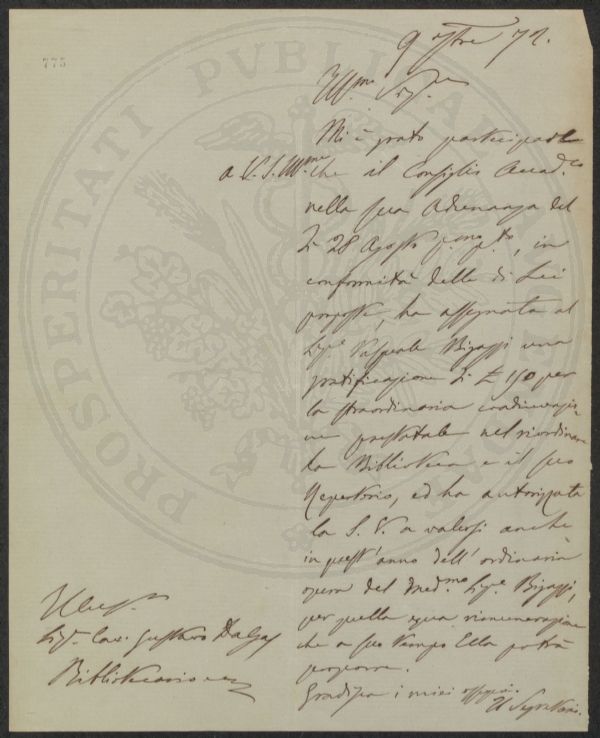 775
9 7bre 72.
Illmo Sigre
Mi è grato partecipare
a V. S. Illma che il Consiglio Accad.co
nella sua Adunanza del
dì 28 Agosto pmo pto, in
conformità delle di Lei
proposte, ha assegnata al
Sigre Pasquale Bigazzi una
gratificazione di £ 150 per
la straordinaria coadiuvazio=
ne prestatale nel riordinare
la Biblioteca e il suo
Repertorio, ed ha autorizzata
la S. V. a valersi anche
in quest'anno dell'ordinaria
opera del medmo Sigre Bigazzi,
per quella equa rimunerazione
che a suo tempo Ella potrà
proporre.
Gradisca i miei ossequi.
Il Segretario.
Sigr Cav. Gustavo Dalgas
Bibliotecario
PROSPERITATI PUBLICAE